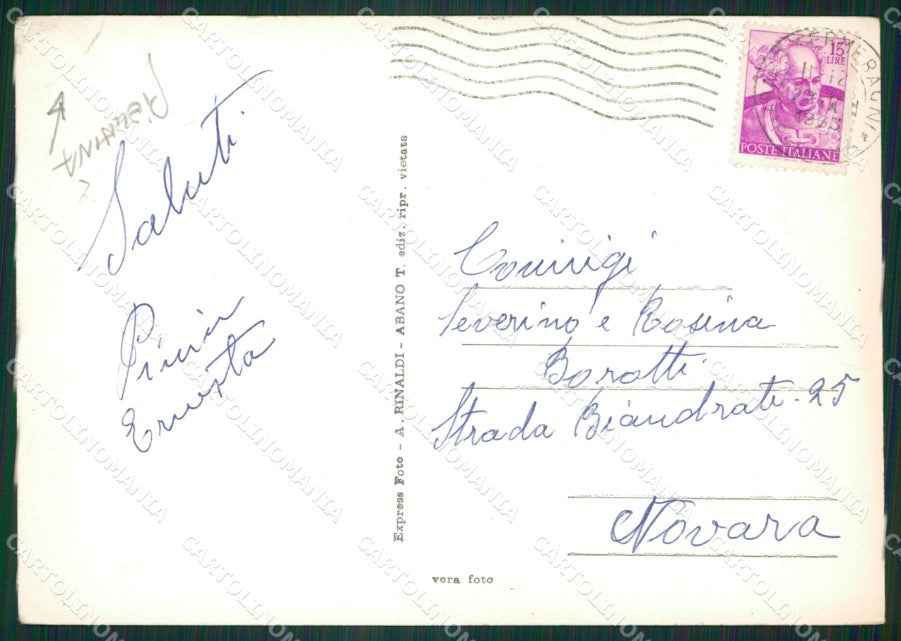 Saluti
Pinin
Ernesta
Express Foto - A. RINALDI - ABANO T. ediz. ripr. vietata
vera foto
15
LIRE
POSTE ITALIANE
1963
Coniugi
Severino e Rosina
Borotti
Strada Biandrate 25
Novara
CARTOLINOMANIA